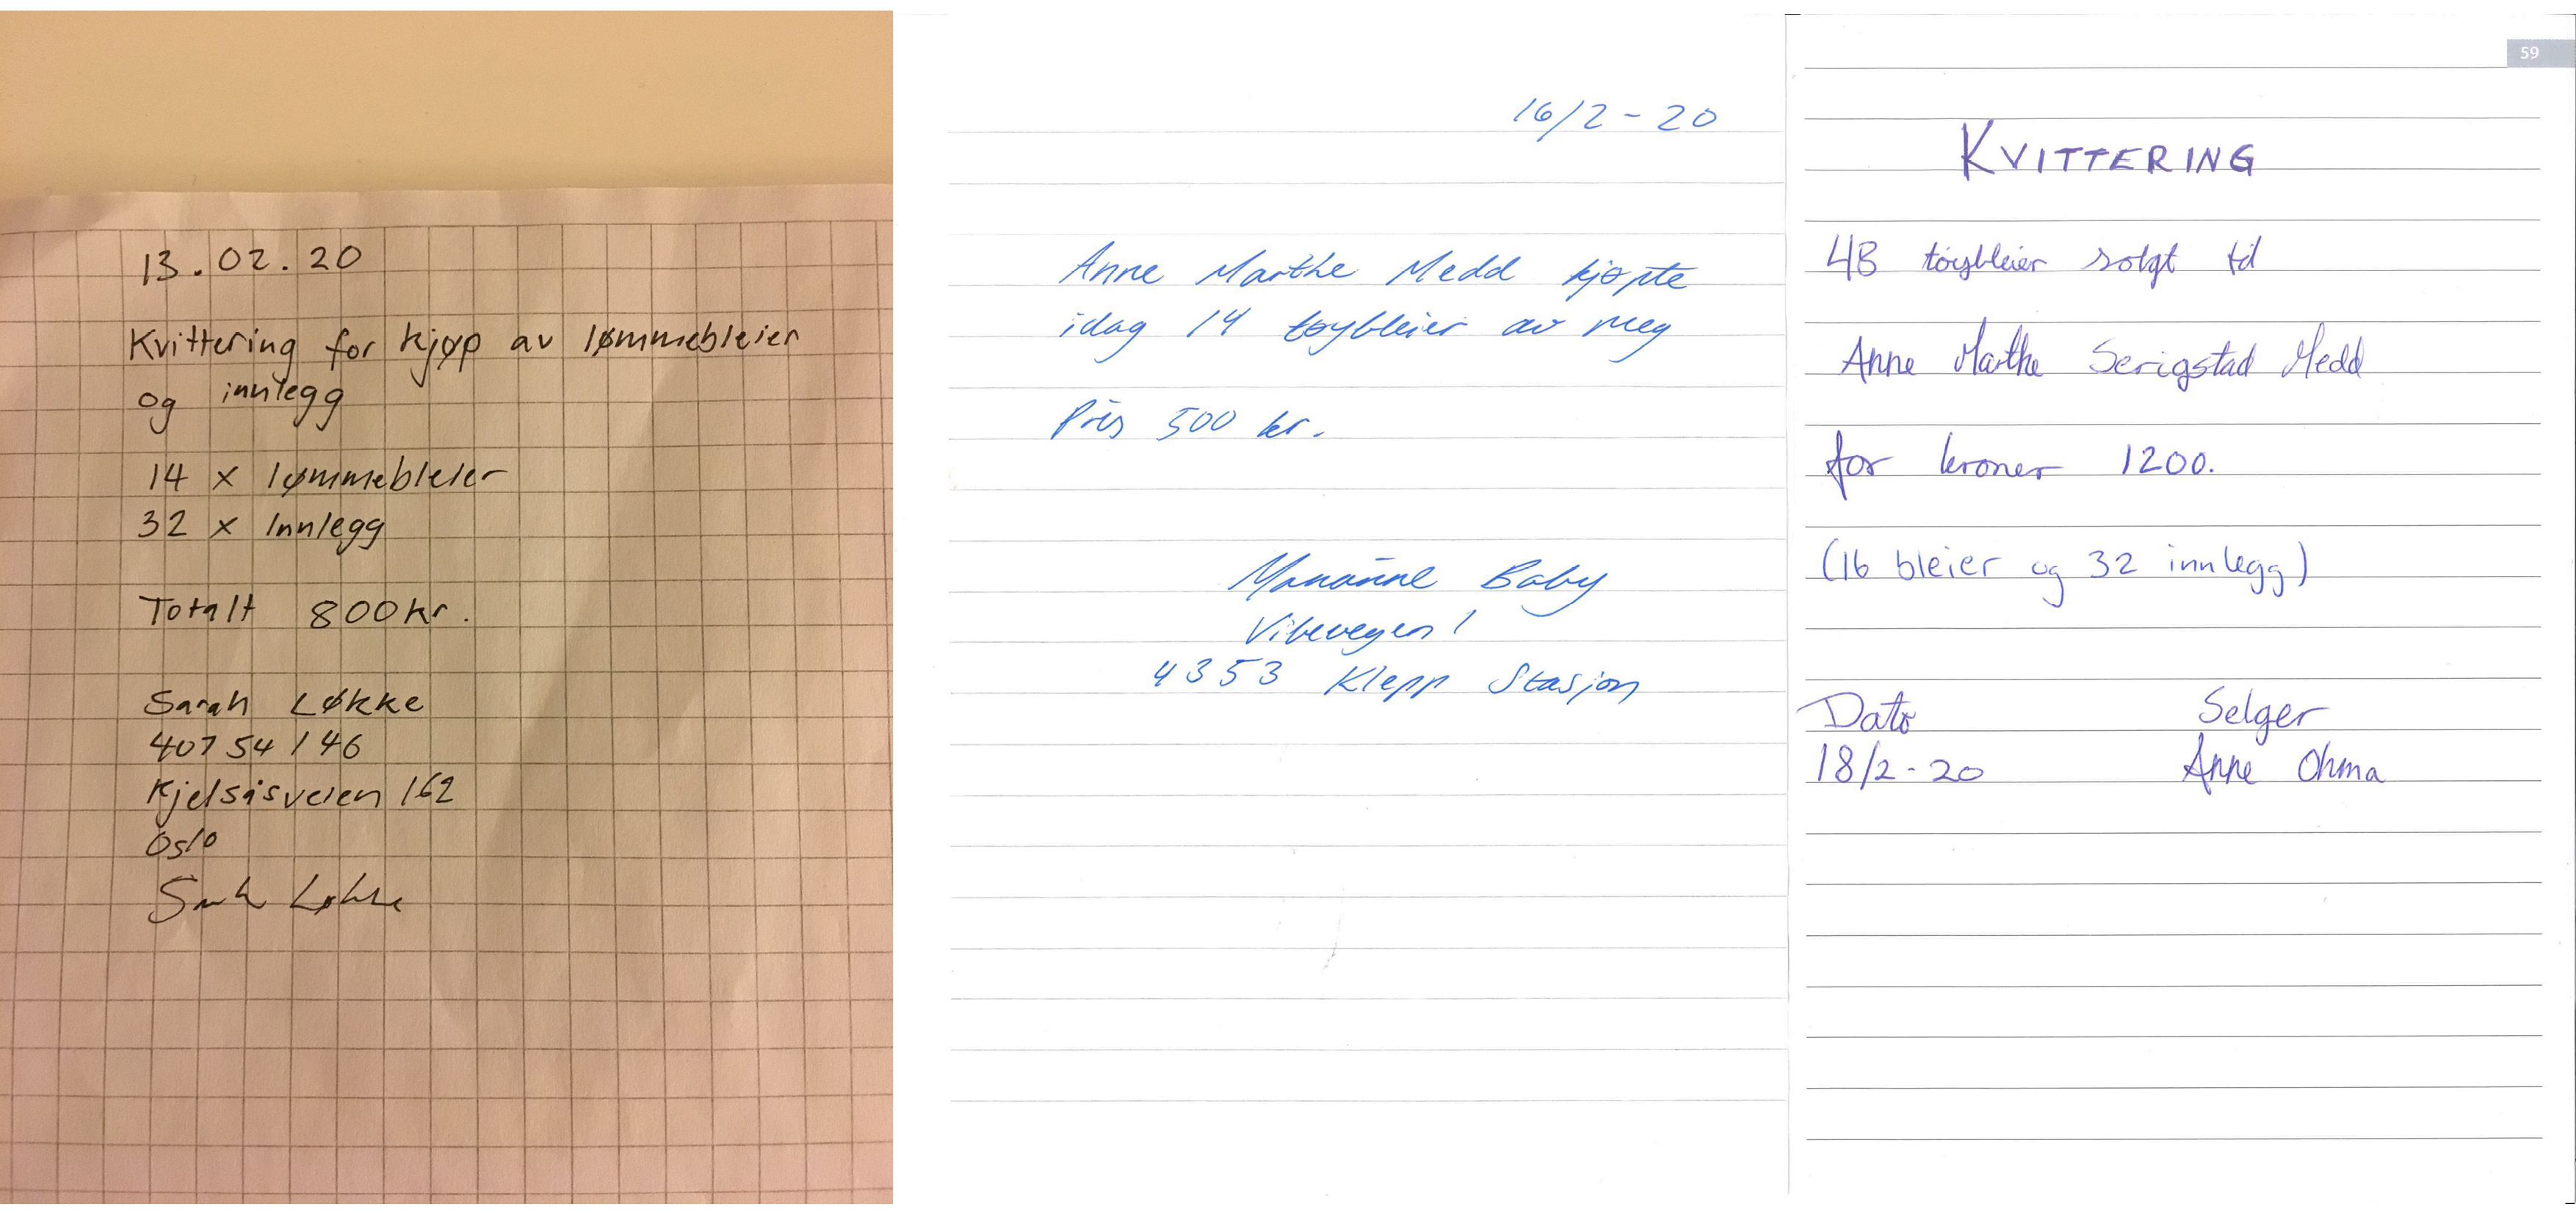 13.02.20
Kvittering for kjøp av lommebleier
og innlegg
14 x lommebleier
32 x Innlegg
Totalt 800kr.
Sarah Løkke
40754146
Kjelsåsveien 162
Oslo
Sarah Løkke
16/2-20
Anne Marthe Medd kjøpte
idag 14 tøybleier av meg
Pris 500 kr.
Marianne Baby
Vibevegen 1
4353 Klepp Stasjon
59
KVITTERING
48 tøybleier solgt til
Anne Marthe Serigstad Medd
for kroner 1200.
(16 bleier og 32 innlegg)
Dato Selger
18/2-20 Anne Ohma